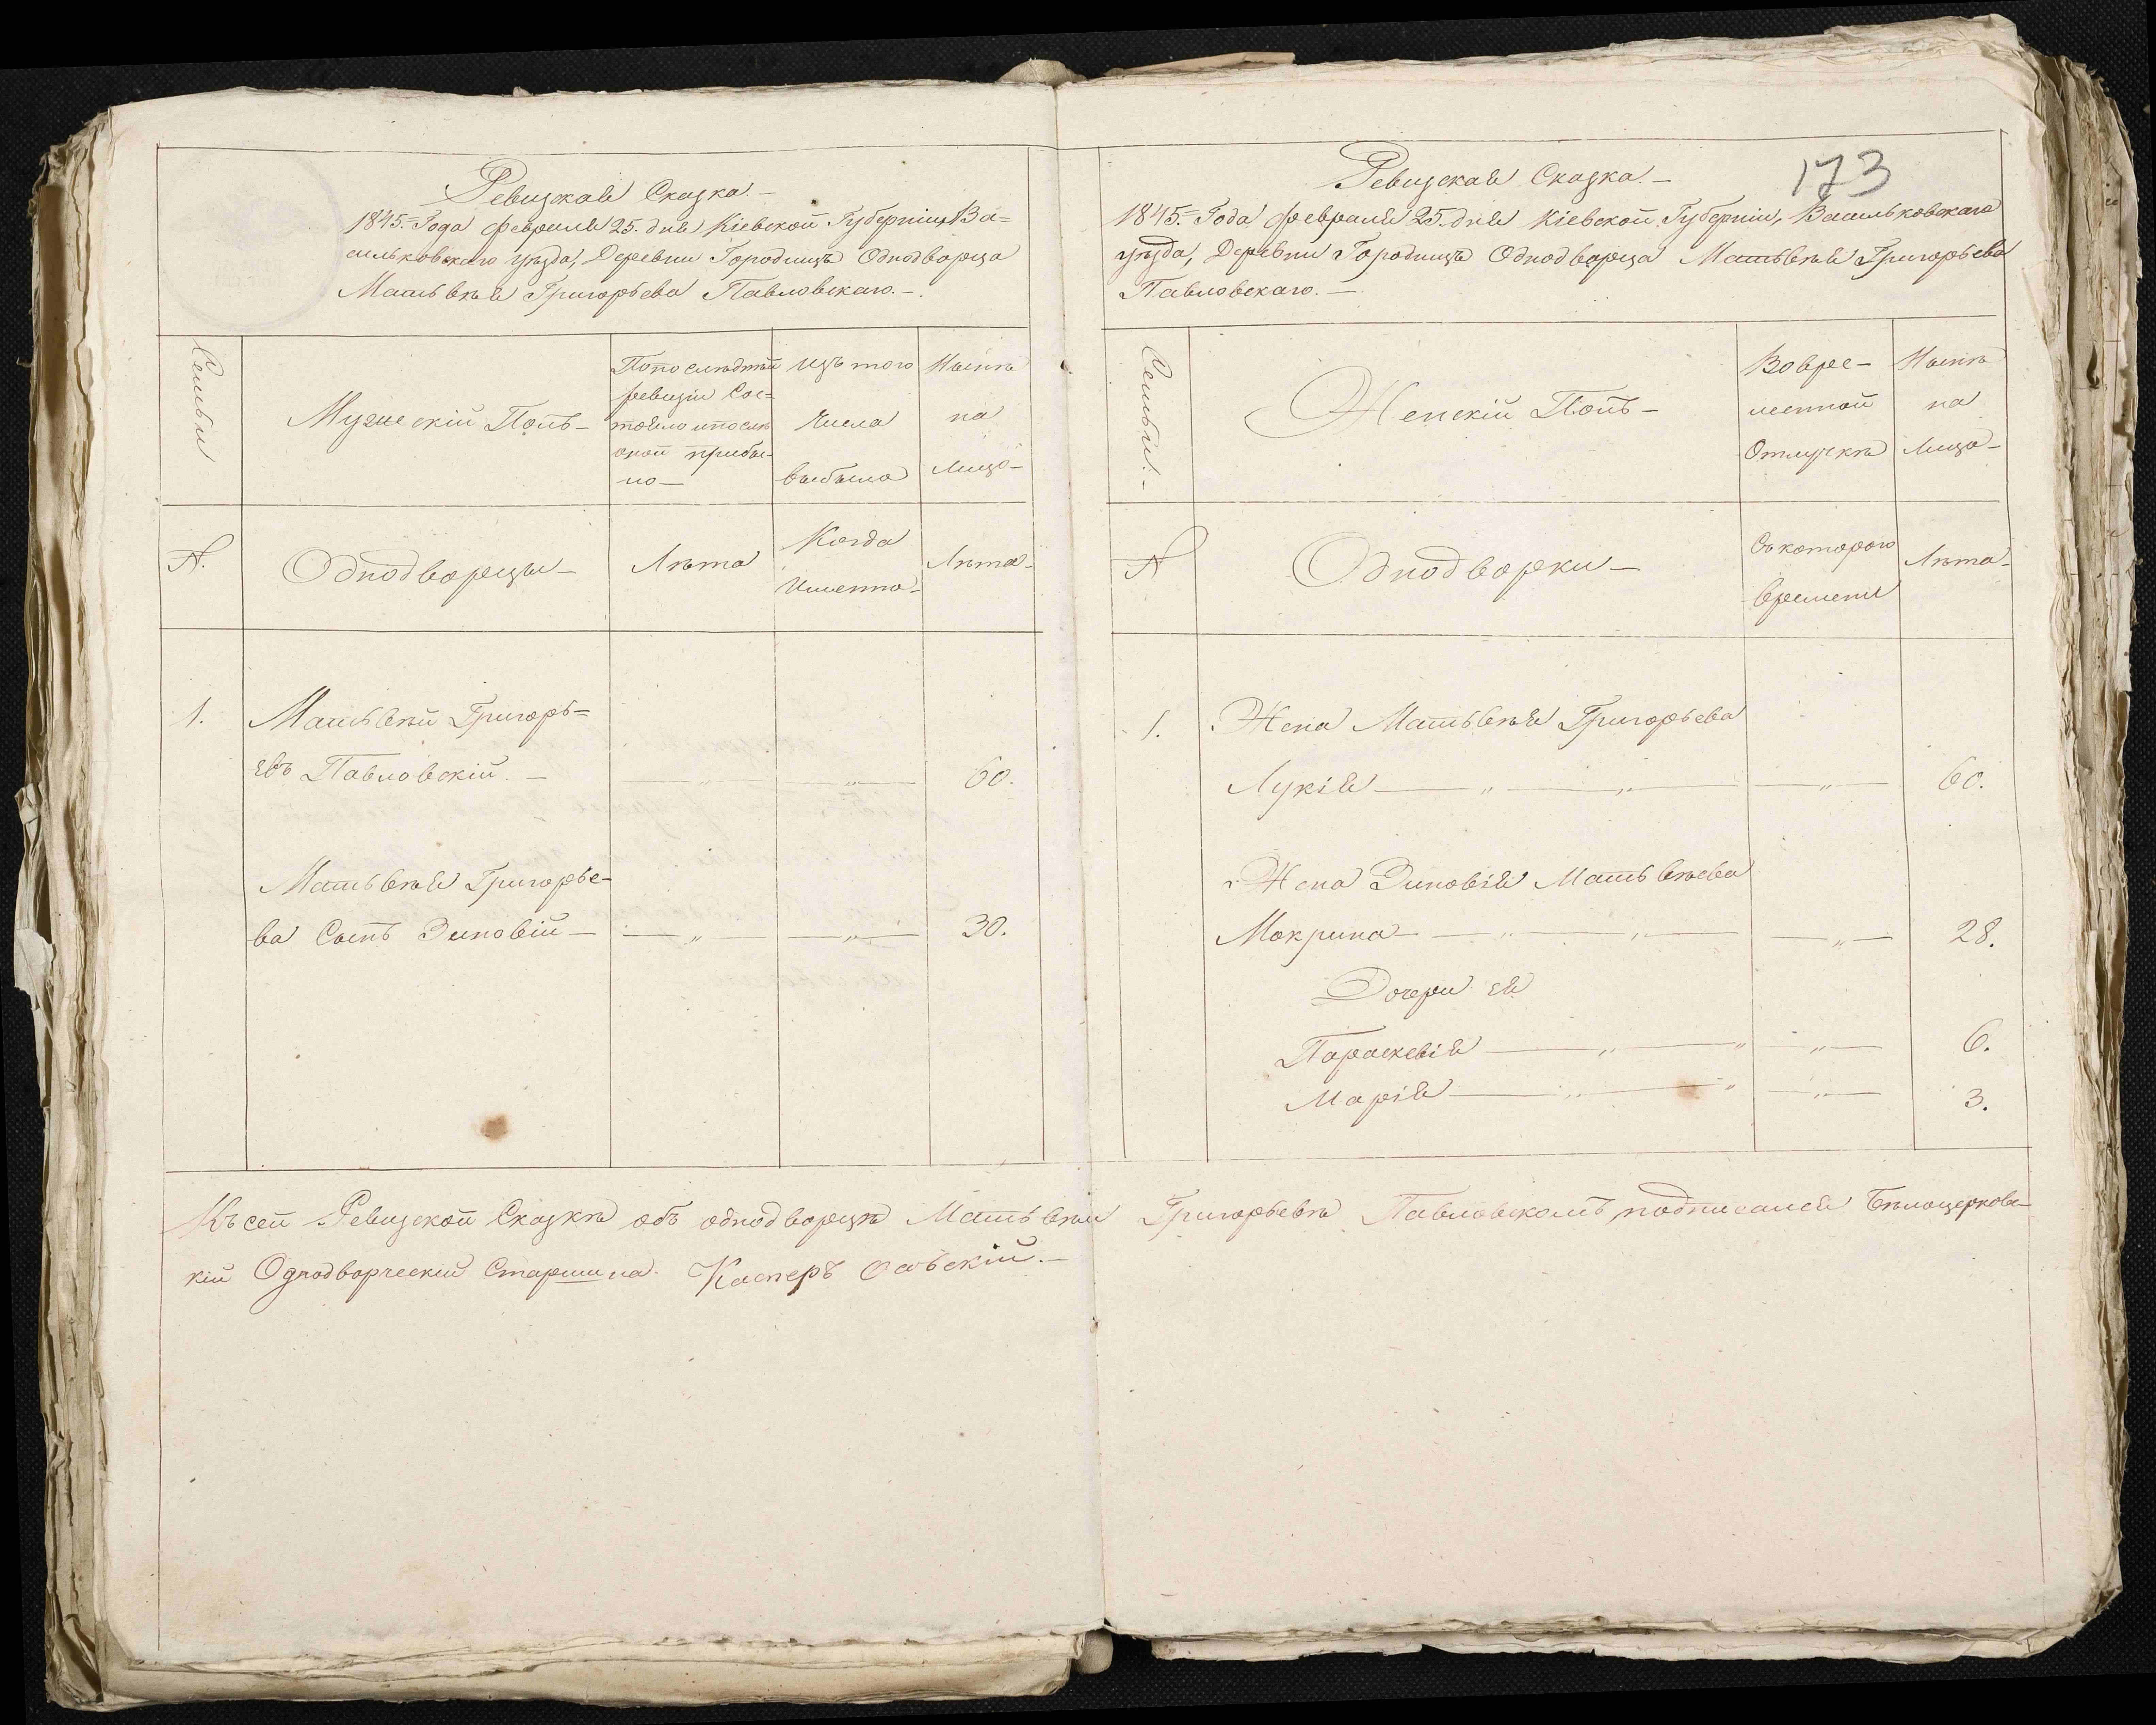 Ревизская Сказка.—
1845.= Года февраля 25. дня Кіевской Губерніи, Ва=
сильковскаго уѣзда, Деревни Городищъ Однодворца
Матьвѣя Григорьева Павловскаго.—
Семьи
Мужескій Полъ—
По послѣдней
ревизіи Сос=
тояло и послѣ
оной прибы-
ло—
Изъ того
Числа
выбыло
Нынѣ
на
лицо—
№.
Однодворцы—
Лѣта
Когда
Именно—
Лѣта—
1.
Матьвѣй Григорь=
евъ Павловскій.— — „ — „ — 60.
Матьвѣя Григорье-
ва Сынъ Зиновій — — „ — — „ — 30.
173
Ревизская Сказка.—
1845.= Года февраля 25. дня Кіевской Губерніи, Васильковскаго
уѣзда, Деревни Городищъ Однодворца Матьвѣя Григорьева
Павловскаго.—
Семьи.—
Женскій Полъ—
Во вре-
менной
Отлучкѣ
Нынѣ
на
лицо—
№
Однодворки—
Съ котораго
времени
Лѣта—
1. Жена Матьвѣя Григорьева
Лукія — „ — „ — — „ — 60.
Жена Зиновія Матьвѣева
Мокрина — „ — „ — — „ — 28.
Дочери ея
Параскевія — „ — „ — „ — 6.
Марія — „ — „ — „ — 3.
Къ сей Ревизской Сказкѣ объ однодворцѣ Матьвѣи Григорьевѣ Павловскомъ подписался Бѣлоцерковс-
кій Однодворческій Старшина Касперъ